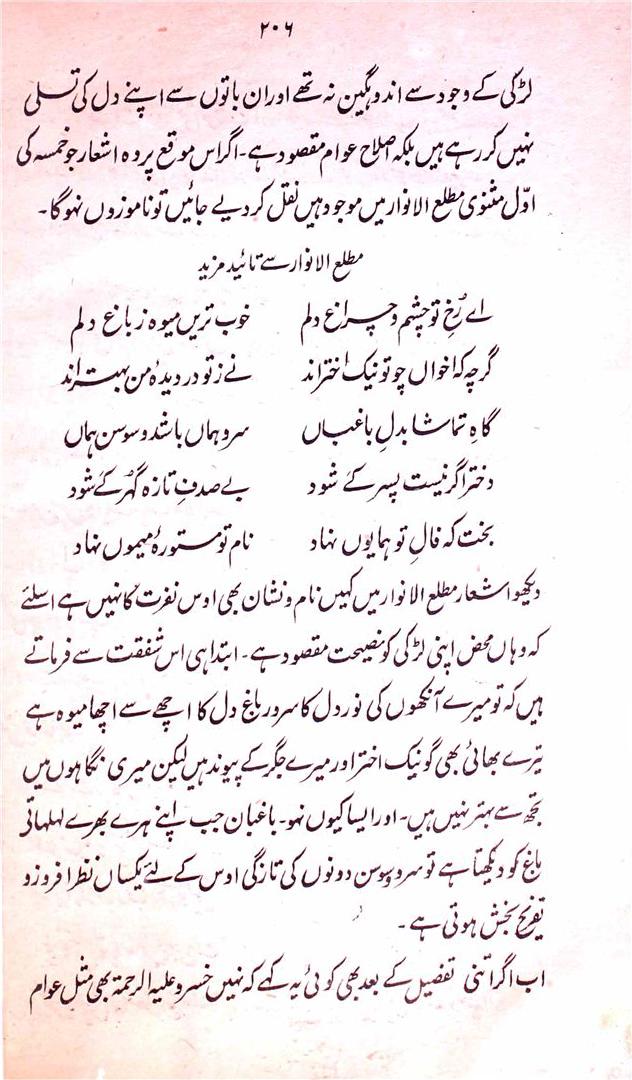 ۲۰۶
لڑکی کے وجود سے اندوہگین نہ تھے اور ان باتوں سے اپنے دل کی تسلی
نہیں کر رہے ہیں بلکہ اصلاح عوام مقصود ہے۔ اگر اس موقع پر وہ اشعار جو خمسہ کی
اوّل مثنوی مطلع الانوار میں موجود ہیں نقل کر دیے جائیں تو ناموزوں نہوگا۔
مطلع الانوار سے تائید مزید
اے رُخِ تو چشم و چراغ دلم خوب تریں میوہ ز باغ دلم
گرچہ کہ اخواں چو تو نیک اختر اند نے ز تو در دیدۂ من بہتر اند
گاہِ تماشا بدلِ باغباں سرو ہماں باشد و سوسن ہماں
دختر اگر نیست پسر کے شود بے صدفِ تازہ گہر کے شود
بخت کہ فالِ تو ہمایوں نہاد نام تو مستورۂ میموں نہاد
دیکھو اشعار مطلع الانوار میں کہیں نام و نشان بھی اوس نفرت کا نہیں ہے اسلئے
کہ وہاں محض اپنی لڑکی کو نصیحت مقصود ہے۔ ابتدا ہی اس شفقت سے فرماتے
ہیں کہ تو میرے آنکھوں کی نور دل کا سرور باغ دل کا اچھے سے اچھا میوہ ہے
تیرے بھائی بھی گو نیک اختر اور میرے جگر کے پیوند ہیں لیکن میری نگاہوں میں
تجھ سے بہتر نہیں ہیں۔ اور ایسا کیوں نہو۔ باغبان جب اپنے ہرے بھرے لہلہاتی
باغ کو دیکھتا ہے تو سرو و سوسن دونوں کی تازگی اوس کے لئے یکساں نظر افروز و
تفریح بخش ہوتی ہے۔
اب اگر اتنی تفصیل کے بعد بھی کوئی یہ کہے کہ نہیں خسرو علیہ الرحمۃ بھی مثل عوام